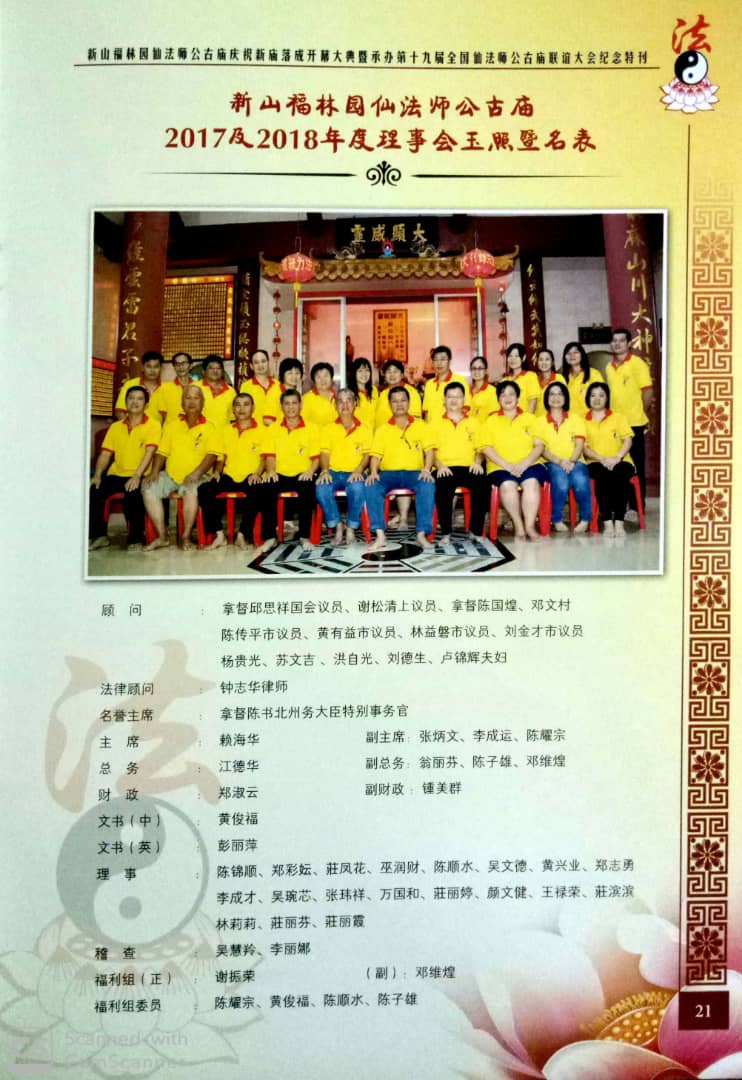 新山福林园仙法师公古庙庆祝新庙落成开幕大典暨承办第十九届全国仙法师公古庙联谊大会纪念特刊
法
新山福林园仙法师公古庙
2017及2018年度理事会玉照暨名表
靈威顯大
麻山川大神
顾 问 : 拿督邱思祥国会议员、谢松清上议员、拿督陈国煌、邓文村
陈传平市议员、黄有益市议员、林益磐市议员、刘金才市议员
杨贵光、苏文吉、洪自光、刘德生、卢锦辉夫妇
法律顾问 : 钟志华律师
名誉主席 : 拿督陈书北州务大臣特别事务官
主 席 : 赖海华 副主席: 张炳文、李成运、陈耀宗
总 务 : 江德华 副总务: 翁丽芬、陈子雄、邓维煌
财 政 : 郑淑云 副财政: 锺美群
文书(中) : 黄俊福
文书(英) : 彭丽萍
理 事 : 陈锦顺、郑彩妘、莊凤花、巫润财、陈顺水、吴文德、黄兴业、郑志勇
李成才、吴琬芯、张玮祥、万国和、莊丽婷、颜文健、王禄荣、莊滨滨
林莉莉、莊丽芬、莊丽霞
稽 查 : 吴慧羚、李丽娜
福利组(正) : 谢振荣 (副): 邓维煌
福利组委员 : 陈耀宗、黄俊福、陈顺水、陈子雄
法
21
Scanned with
CamScanner